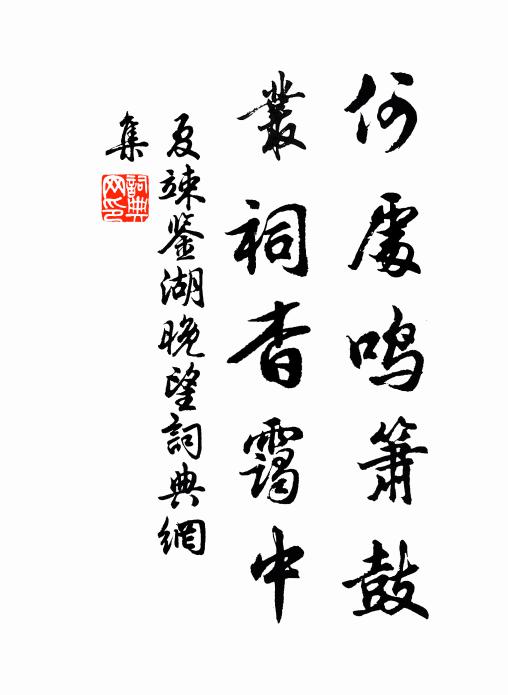 何處鳴簫鼓
叢祠杳靄中
夏竦鑒湖晚望詞典網
集
詞典
网印